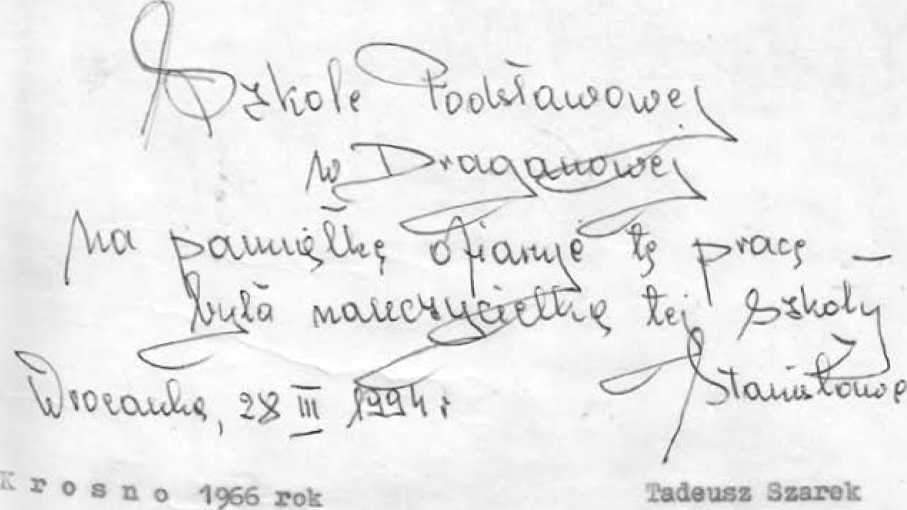 Szkole Podstawowej
w Draganowej
na pamiątkę ofiaruje tę pracę –
była nauczycielka tej Szkoły
Wrocanka, 28 III 1994 r
Krosno 1966 rok Tadeusz Szarek